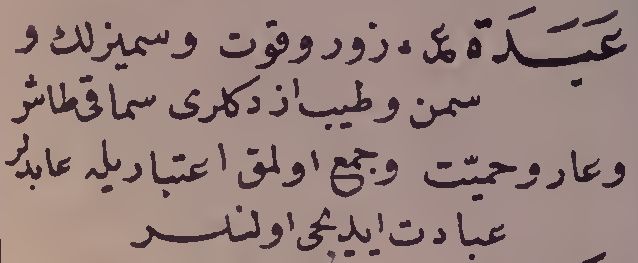 عَبَدَة ع ه زور و قوت و سميزلك و
سمن و طيب ازدكلرى سماقى طاش
و عار و حميّت و جمع اولمق اعتباريله عابدلر
عبادت ايديجى اولنلر